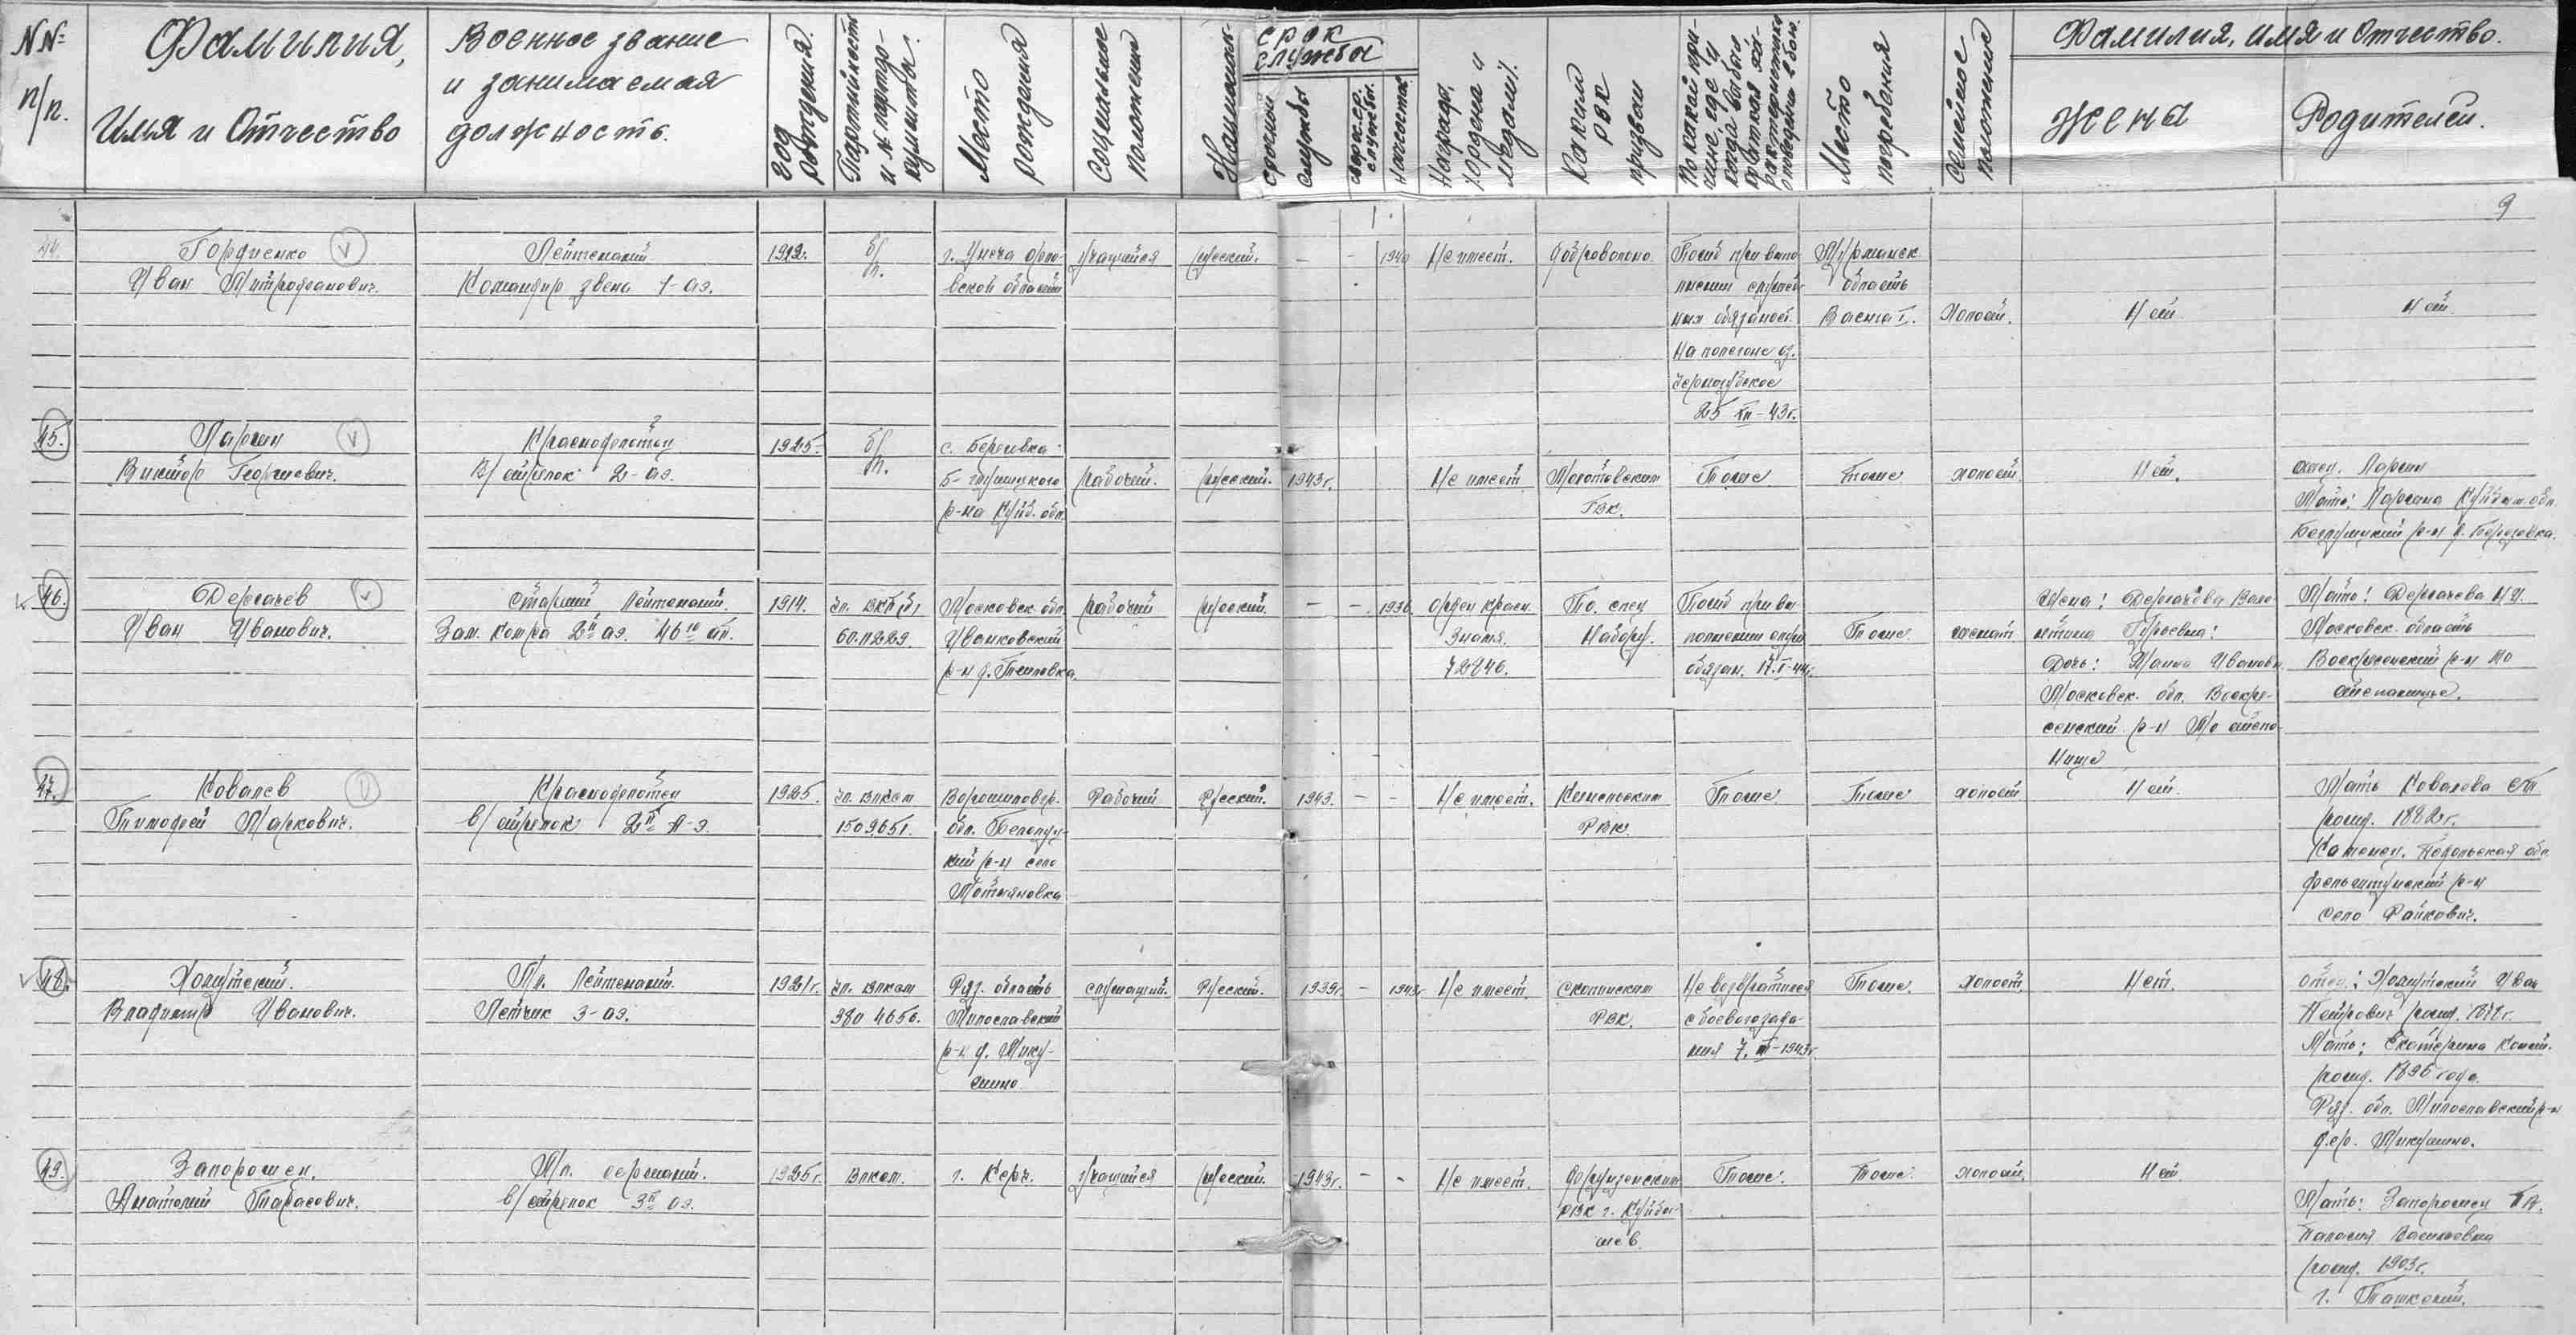 NN: п/п.
Фамилия,
Имя и Отчество
Военное звание
и занимаемая
должность.
год рождения.
Партийность и № партдо-кумента.
Место рождения
Социальное положение
Националь-
срок службы
срочной службы
сверх.ср. службы.
Награды, ордена и медали.
Каким РВК призван
По какой при-чине, где и когда выбыл
краткая ха-рактеристика о поведении в бою.
Место погребения
Семейное положение
Фамилия, имя и Отчество.
Жены
Родителей.
9
44.
Гордиенко
Иван Митрофанович.
Лейтенант
Командир звена 1-аэ.
1912.
б/п.
г. Унеча Орло-
вской области
учащийся
русский.
–
–
1940
Не имеет.
добровольно.
Погиб при выпо-
лнении служеб-
ных обязаност.
На полигоне оз.
25 XII-43г.
Мурманск.
область
Ваенга I.
Холост.
Нет
Нет.
45.
Ларгин
Виктор Георгиевич.
Краснофлотец
В/стрелок 2-аэ.
1925.
б/п.
с. Березовка
р-на Куйб. обл.
рабочий.
русский.
1943г.
Не имеет
Молотовским
ГВК.
Тоже
Тоже
холост.
Нет.
отец. Ларгин
Мать: Ларгина Куйбыш. обл.
р-н с. Березовка.
46.
Дергачев
Иван Иванович.
Старший Лейтенант.
Зам. Ком-ра 2й аэ. 46го ап.
1914.
чл. ВКП(б)
Московск. обл.
Иваньковский
р-н д. Тепловка.
рабочий
русский.
–
–
1936
орден красн.
Знамя.
72846.
По спец
Набору.
Погиб при вы
полнении служ
обязан. 17.I-44г.
Тоже
женат
Жена: Дергачёва Вале-
нтина Гурьевна:
Дочь: Жанна Ивановн.
Московск. обл. Воскре-
сенский р-н
Мать: Дергачева
Московск. область
Воскресенский р-н
47.
Ковалев
Тимофей Маркович.
Краснофлотец
в/стрелок 2й А-Э.
1925.
чл. влксм
1509651.
Ворошиловгр.
обл. Белолуц-
кий р-н село
Рабочий
Русский.
1943.
–
–
Не имеет.
РВК.
Тоже
Тоже
холост
Нет.
Мать Ковалева
рожд. 1882г.
Каменец. Подольская обл.
р-н
село Райкович.
48.
Хомутский.
Владимир Иванович.
Мл. Лейтенант.
Летчик 3-аэ.
1921г.
чл. влксм
380 4656.
Ряз. область
Милославский
р-н д. Мику-
шино.
служащий.
Русский.
1939г.
–
Не имеет.
Скопинским
РВК.
Не возвратился
с боевого зада-
ния
Тоже.
Холост.
Нет.
отец: Хомутский Иван
Петрович рожд.
Мать: Екатерина Конст.
рожд. 1896 года.
Ряз. обл. Милославский р-н
дер. Микушино.
49.
Запорожец.
Анатолий Тарасович.
Мл. сержант.
в/стрелок 3й аэ.
1925г.
Влксм.
г. Керч.
учащийся
русский.
1943г.
–
–
Не имеет.
Фрунзенским
РВК г. Куйбы-
шев
Тоже.
Тоже.
холост.
Нет
Мать: Запорожец
Васильевна
рожд. 1903г.
г. Ташкент.